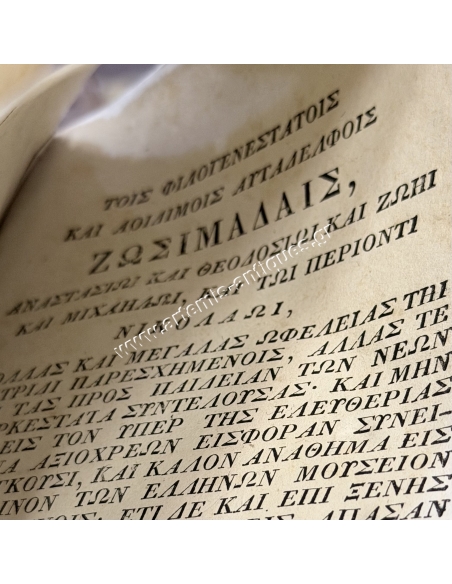 ΤΟΙΣ ΦΙΛΟΓΕΝΕΣΤΑΤΟΙΣ
ΚΑΙ ΑΟΙΔΙΜΟΙΣ ΑΥΤΑΔΕΛΦΟΙΣ
ΖΩΣΙΜΑΔΑΙΣ,
ΑΝΑΣΤΑΣΙΩΙ ΚΑΙ ΘΕΟΔΟΣΙΩΙ ΚΑΙ ΖΩΗΙ
ΚΑΙ ΜΙΧΑΗΛΩΙ, ΚΑΙ ΤΩΙ ΠΕΡΙΟΝΤΙ
ΝΙΚΟΛΑΩΙ,
ΚΑΙ ΜΕΓΑΛΑΣ ΩΦΕΛΕΙΑΣ ΤΗΙ
ΠΑΡΕΣΧΗΜΕΝΟΙΣ, ΑΛΛΑΣ ΤΕ
ΤΑΣ ΠΡΟΣ ΠΑΙΔΕΙΑΝ ΤΩΝ ΝΕΩΝ
ΣΥΝΤΕΛΟΥΣΑΣ· ΚΑΙ ΜΗΝ
ΕΙΣ ΤΟΝ ΥΠΕΡ ΤΗΣ ΕΛΕΥΘΕΡΙΑΣ
ΑΞΙΟΧΡΕΩΝ ΕΙΣΦΟΡΑΝ ΣΥΝΕΙ-
ΚΑΙ ΚΑΛΟΝ ΑΝΑΘΗΜΑ ΕΙΣ
ΤΩΝ ΕΛΛΗΝΩΝ ΜΟΥΣΕΙΟΝ
ΕΤΙ ΔΕ ΚΑΙ ΕΠΙ ΞΕΝΗΣ
ΑΠΑΣΑΝ
www.artemis-antiques.gr